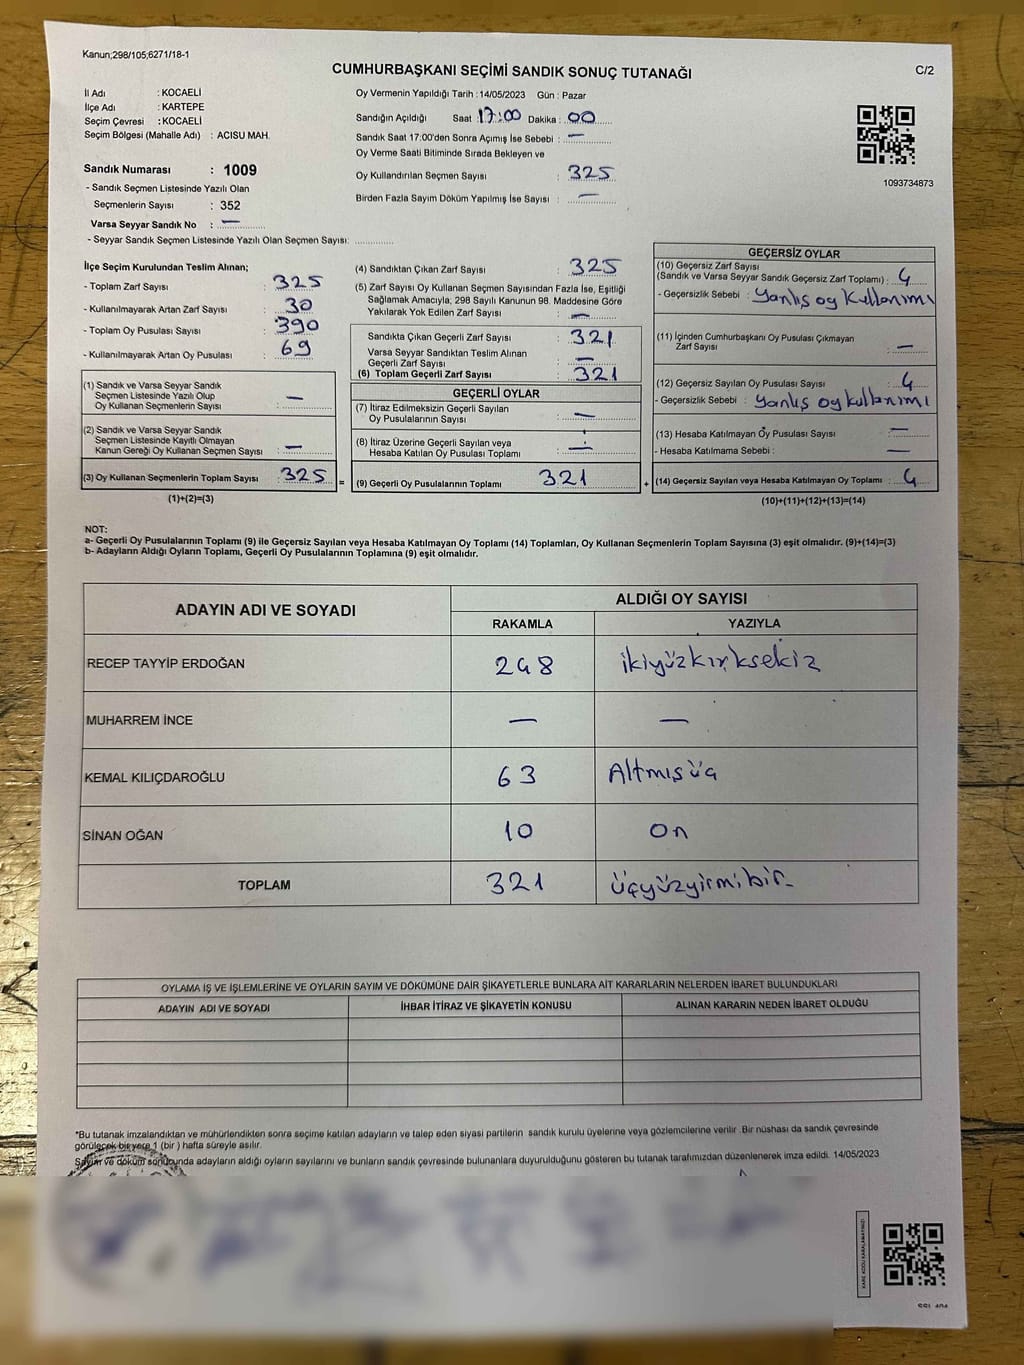 Kanun;298/105;6271/18-1
CUMHURBAŞKANI SEÇİMİ SANDIK SONUÇ TUTANAĞI
C/2
İl Adı : KOCAELİ
İlçe Adı : KARTEPE
Seçim Çevresi : KOCAELİ
Seçim Bölgesi (Mahalle Adı) : ACISU MAH.
Sandık Numarası : 1009
- Sandık Seçmen Listesinde Yazılı Olan
Seçmenlerin Sayısı : 352
Varsa Seyyar Sandık No : —
- Seyyar Sandık Seçmen Listesinde Yazılı Olan Seçmen Sayısı: ..............
Oy Vermenin Yapıldığı Tarih : 14/05/2023 Gün : Pazar
Sandığın Açıldığı Saat : 17:00 Dakika : 00
Sandık Saat 17:00'den Sonra Açımış İse Sebebi : —
Oy Verme Saati Bitiminde Sırada Bekleyen ve
Oy Kullandırılan Seçmen Sayısı : 325
Birden Fazla Sayım Döküm Yapılmış İse Sayısı : —
1093734873
İlçe Seçim Kurulundan Teslim Alınan;
- Toplam Zarf Sayısı : 325
- Kullanılmayarak Artan Zarf Sayısı : 30
- Toplam Oy Pusulası Sayısı : 390
- Kullanılmayarak Artan Oy Pusulası : 69
(1) Sandık ve Varsa Seyyar Sandık
Seçmen Listesinde Yazılı Olup
Oy Kullanan Seçmenlerin Sayısı : —
(2) Sandık ve Varsa Seyyar Sandık
Seçmen Listesinde Kayıtlı Olmayan
Kanun Gereği Oy Kullanan Seçmen Sayısı : —
(3) Oy Kullanan Seçmenlerin Toplam Sayısı : 325
(1)+(2)=(3)
(4) Sandıktan Çıkan Zarf Sayısı : 325
(5) Zarf Sayısı Oy Kullanan Seçmen Sayısından Fazla İse, Eşitliği
Sağlamak Amacıyla, 298 Sayılı Kanunun 98. Maddesine Göre
Yakılarak Yok Edilen Zarf Sayısı : —
Sandıkta Çıkan Geçerli Zarf Sayısı : 321
Varsa Seyyar Sandıktan Teslim Alınan
Geçerli Zarf Sayısı : —
(6) Toplam Geçerli Zarf Sayısı : 321
GEÇERLİ OYLAR
(7) İtiraz Edilmeksizin Geçerli Sayılan
Oy Pusulalarının Sayısı : —
(8) İtiraz Üzerine Geçerli Sayılan veya
Hesaba Katılan Oy Pusulası Toplamı : —
= (9) Geçerli Oy Pusulalarının Toplamı 321
GEÇERSİZ OYLAR
(10) Geçersiz Zarf Sayısı
(Sandık ve Varsa Seyyar Sandık Geçersiz Zarf Toplamı) : 4
- Geçersizlik Sebebi : Yanlış oy kullanımı
(11) İçinden Cumhurbaşkanı Oy Pusulası Çıkmayan
Zarf Sayısı : —
(12) Geçersiz Sayılan Oy Pusulası Sayısı : 4
- Geçersizlik Sebebi : Yanlış oy kullanımı
(13) Hesaba Katılmayan Oy Pusulası Sayısı : —
- Hesaba Katılmama Sebebi : —
+ (14) Geçersiz Sayılan veya Hesaba Katılmayan Oy Toplamı : 4
(10)+(11)+(12)+(13)=(14)
NOT:
a- Geçerli Oy Pusulalarının Toplamı (9) ile Geçersiz Sayılan veya Hesaba Katılmayan Oy Toplamı (14) Toplamları, Oy Kullanan Seçmenlerin Toplam Sayısına (3) eşit olmalıdır. (9)+(14)=(3)
b- Adayların Aldığı Oyların Toplamı, Geçerli Oy Pusulalarının Toplamına (9) eşit olmalıdır.
ADAYIN ADI VE SOYADI ALDIĞI OY SAYISI
RAKAMLA YAZIYLA
RECEP TAYYİP ERDOĞAN 248 ikiyüzkırksekiz
MUHARREM İNCE — —
KEMAL KILIÇDAROĞLU 63 Altmışüç
SİNAN OĞAN 10 On
TOPLAM 321 üçyüzyirmibir
OYLAMA İŞ VE İŞLEMLERİNE VE OYLARIN SAYIM VE DÖKÜMÜNE DAİR ŞİKAYETLERLE BUNLARA AİT KARARLARIN NELERDEN İBARET BULUNDUKLARI
ADAYIN ADI VE SOYADI İHBAR İTİRAZ VE ŞİKAYETİN KONUSU ALINAN KARARIN NEDEN İBARET OLDUĞU
*Bu tutanak imzalandıktan ve mühürlendikten sonra seçime katılan adayların ve talep eden siyasi partilerin sandık kurulu üyelerine veya gözlemcilerine verilir .Bir nüshası da sandık çevresinde
görülecek bir yere 1 (bir ) hafta süreyle asılır.
Sayım ve döküm sonucunda adayların aldığı oyların sayılarını ve bunların sandık çevresinde bulunanlara duyurulduğunu gösteren bu tutanak tarafımızdan düzenlenerek imza edildi. 14/05/2023
KARE KODU KARALAMAYINIZ!